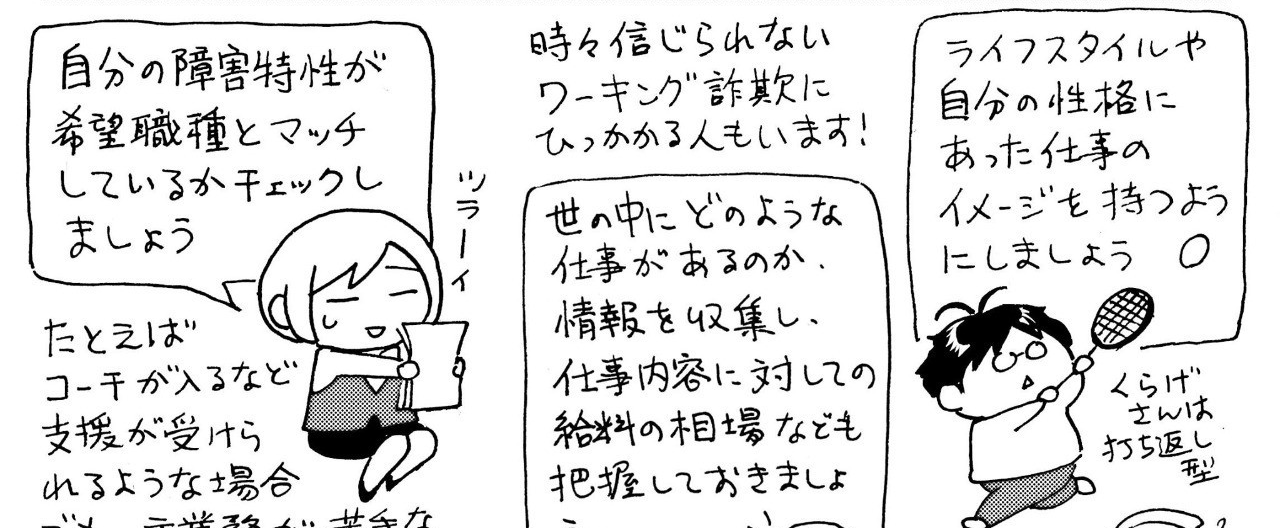 ライフスタイルや
自分の性格に
あった仕事の
イメージを持つよう
にしましょう
くらげ
さんは
打ち返し
型
時々信じられない
ワーキング詐欺に
ひっかかる人もいます!
世の中にどのような
仕事があるのか、
情報を収集し、
仕事内容に対しての
給料の相場なども
把握しておきましょ
自分の障害特性が
希望職種とマッチ
しているかチェックし
ましょう
ツラーイ
たとえば
コーチが入るなど
支援が受けら
れるような場合